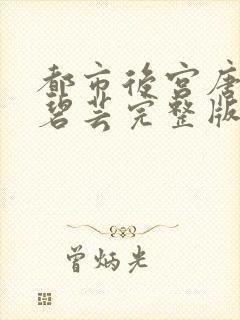 都市后宫唐
碧芸完整版
曾炳光